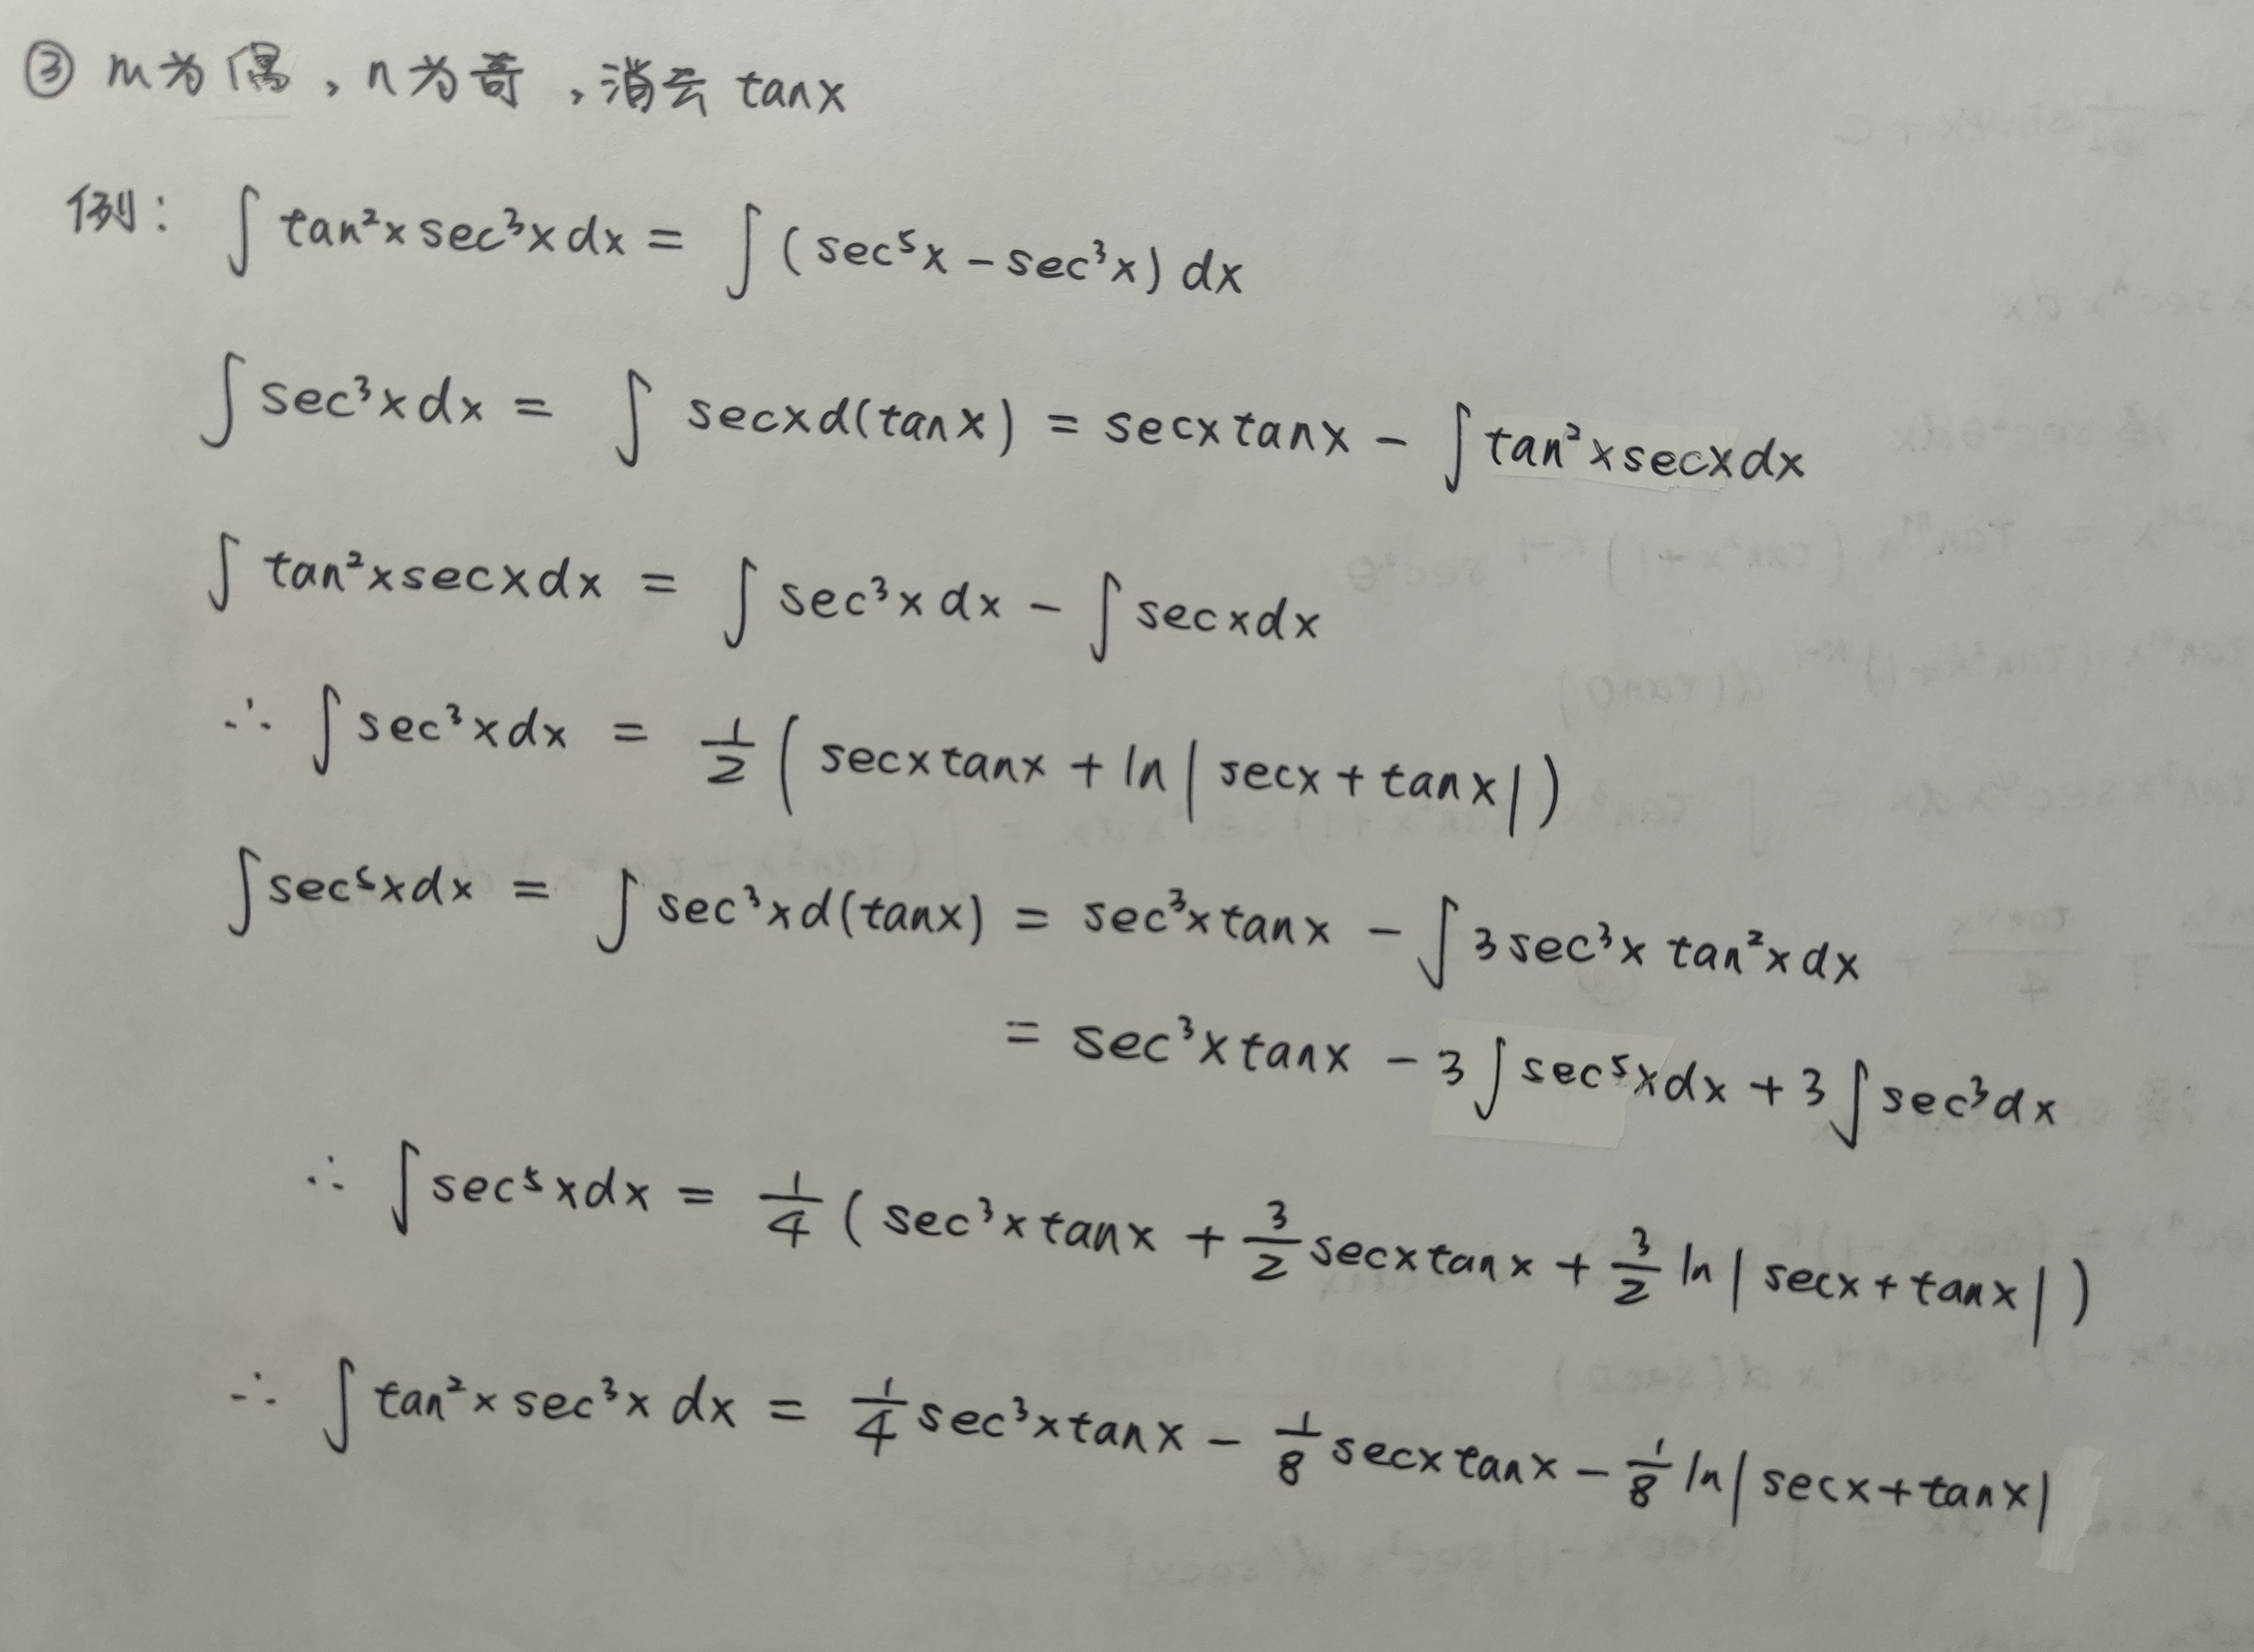 ③ m为偶，n为奇，消去 tanx
例： ∫ tan²x sec³x dx = ∫ (sec⁵x − sec³x) dx
∫ sec³x dx = ∫ secx d(tanx) = secx tanx − ∫ tan²x secx dx
∫ tan²x secx dx = ∫ sec³x dx − ∫ secx dx
∴ ∫ sec³x dx = 1/2 ( secx tanx + ln | secx + tanx | )
∫ sec⁵x dx = ∫ sec³x d(tanx) = sec³x tanx − ∫ 3 sec³x tan²x dx
= sec³x tanx − 3 ∫ sec⁵x dx + 3 ∫ sec³ dx
∴ ∫ sec⁵x dx = 1/4 ( sec³x tanx + 3/2 secx tanx + 3/2 ln | secx + tanx | )
∴ ∫ tan²x sec³x dx = 1/4 sec³x tanx − 1/8 secx tanx − 1/8 ln | secx + tanx |